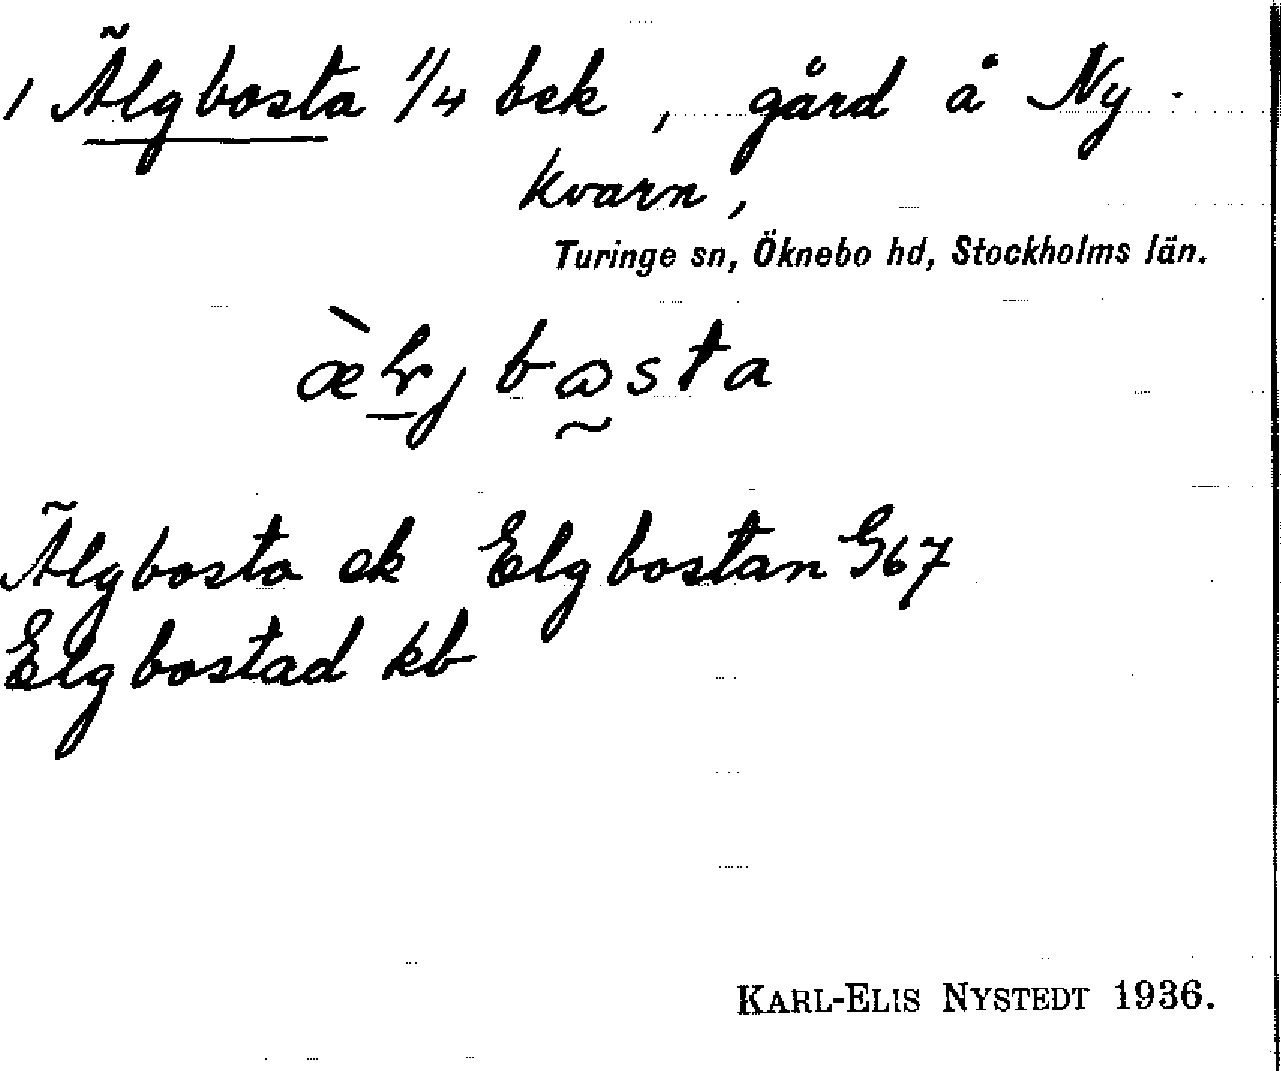 1 Älgbosta 1/4 bek, gård å Ny-
kvarn,
Turinge sn, Öknebo hd, Stockholms län.
Älgbosta ek Elgbostan G67
Elgbostad kb
KARL-ELIS NYSTEDT 1936.